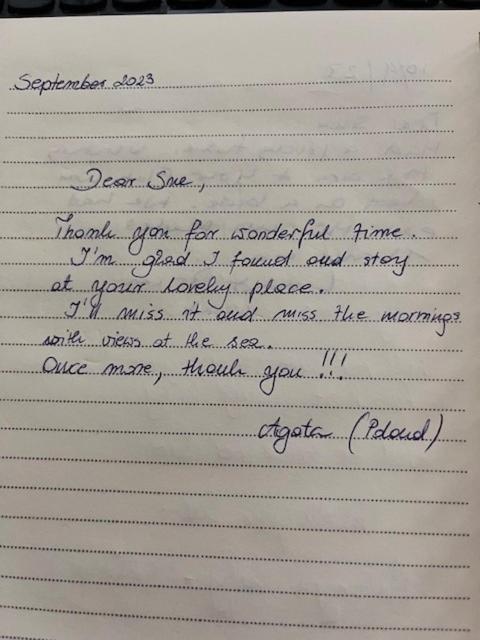 September 2023
Dear Sue,
Thank you for wonderful time.
I'm glad I found and stay
at your lovely place.
I'll miss it and miss the mornings
with views at the sea.
Once more, thank you!!!
Agata (Poland)